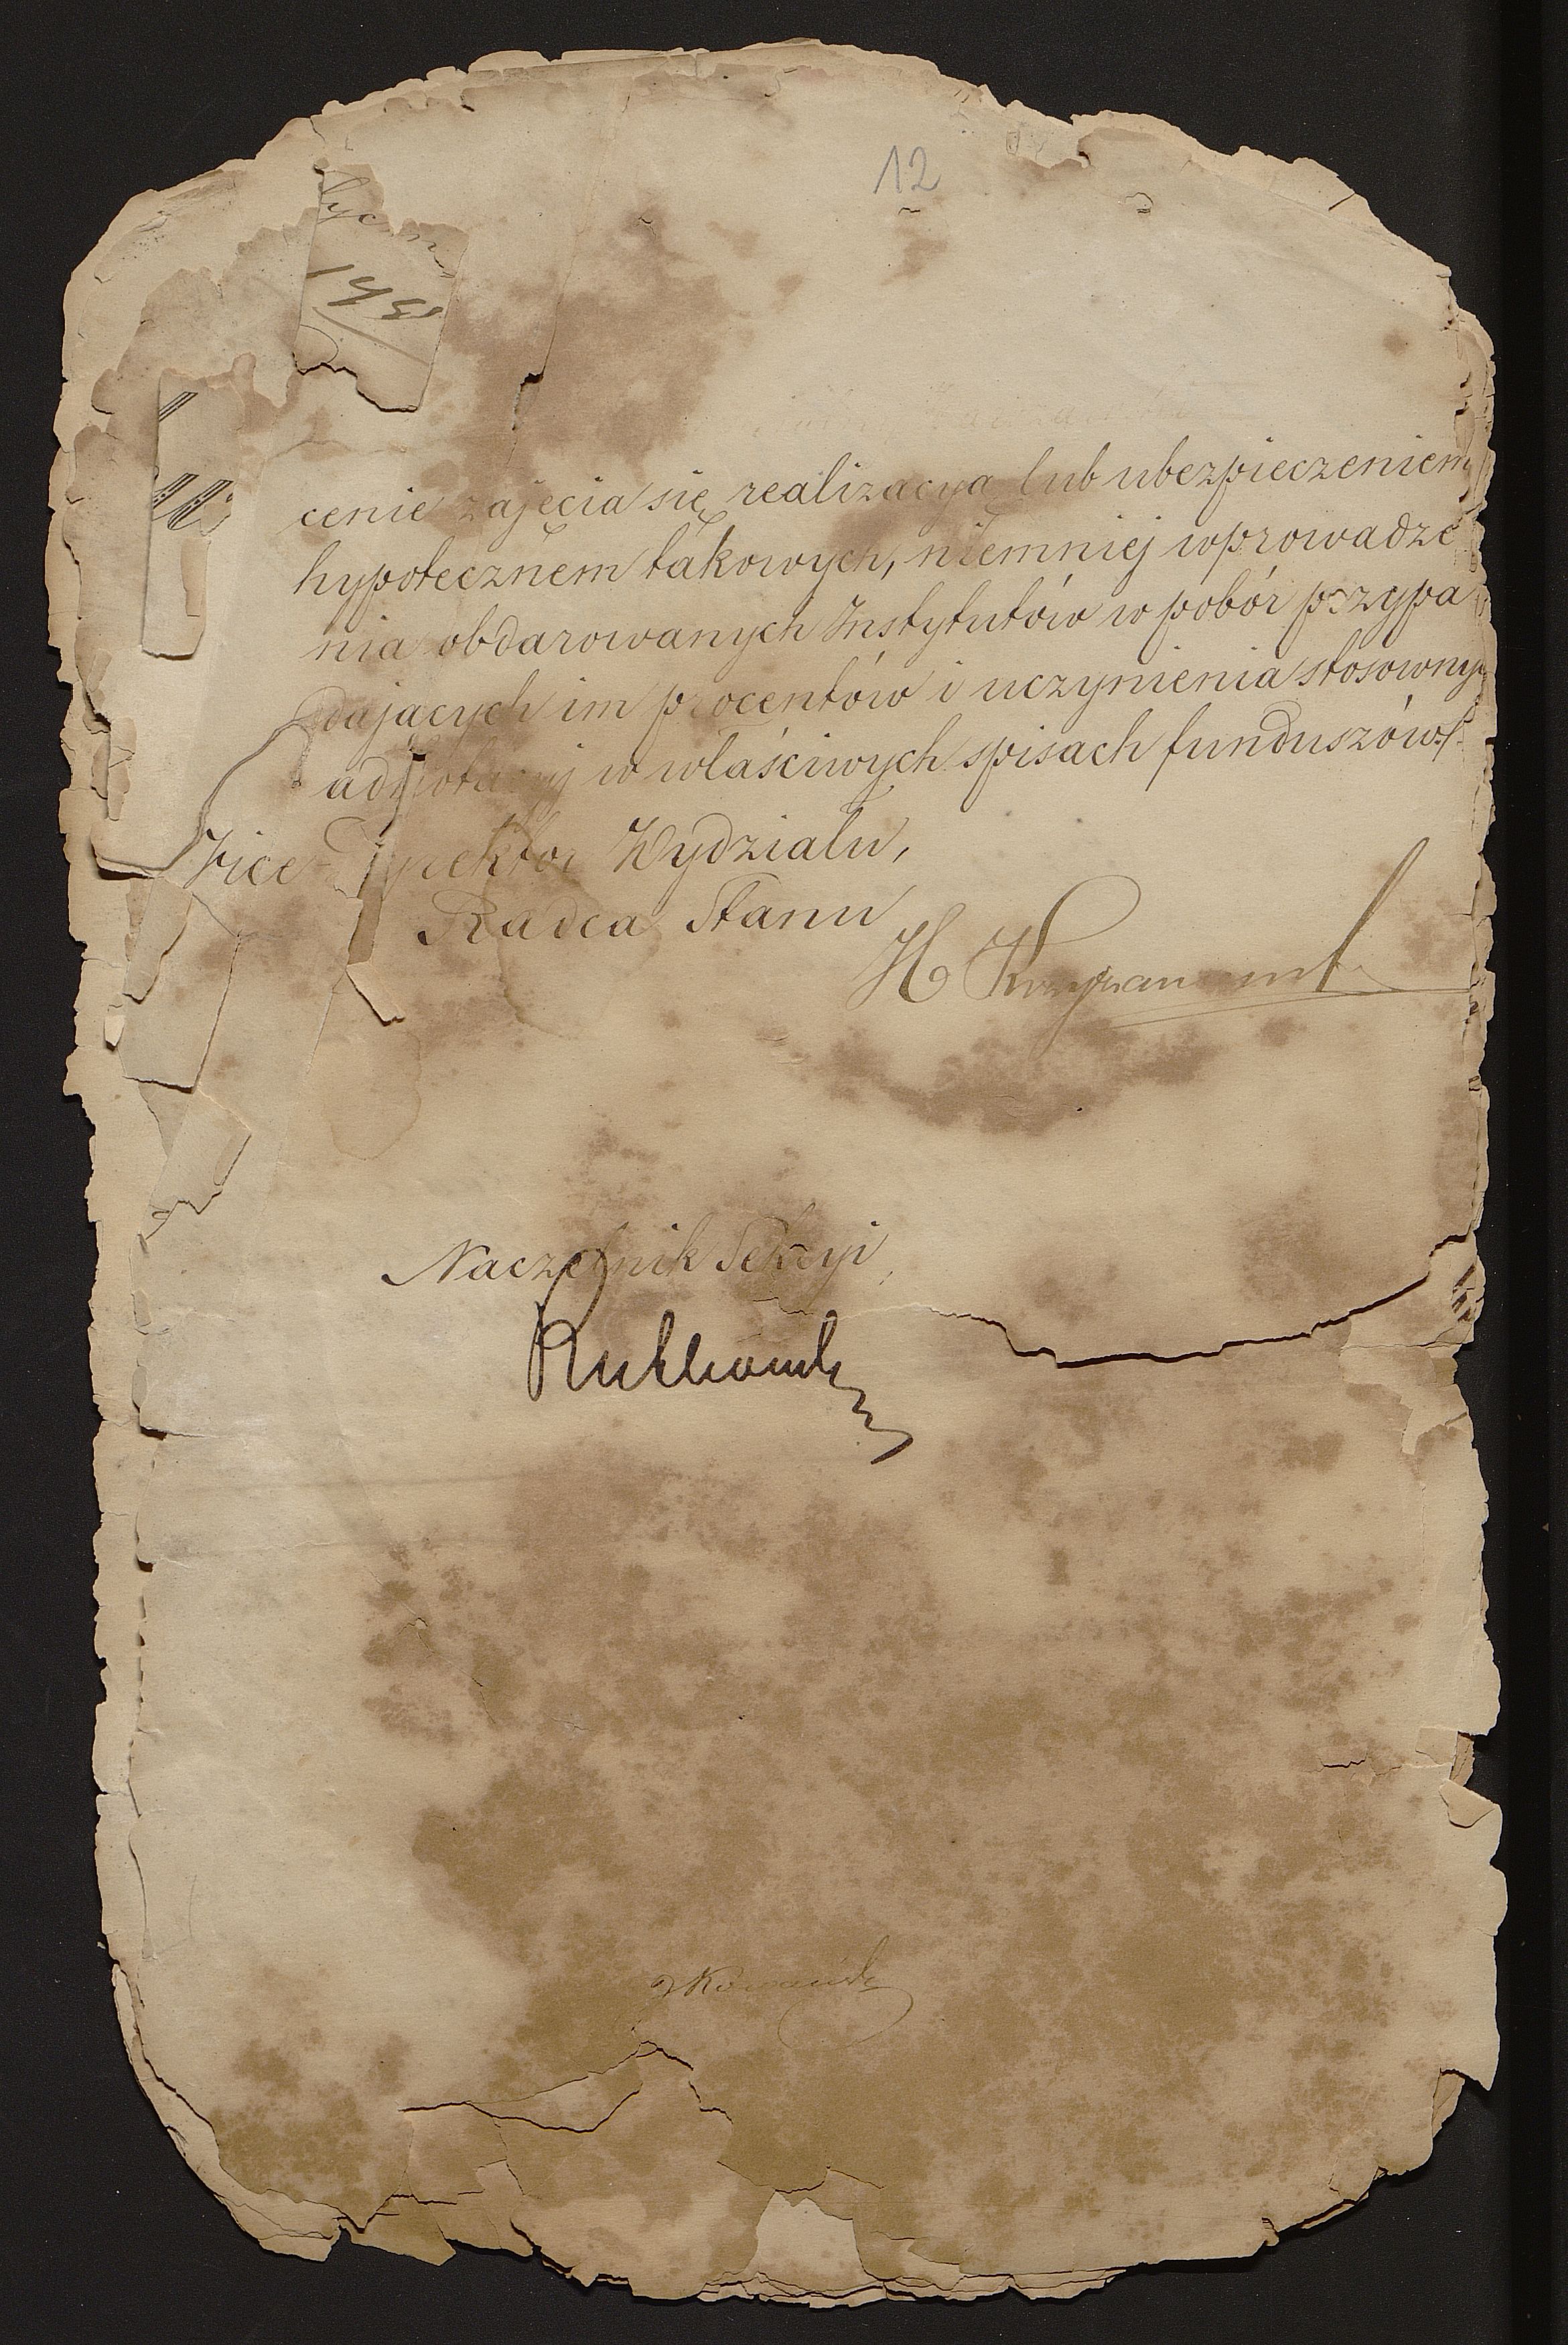 12
cenie zajęcia się realizacyą lub ubezpieczeniem
hypotecznem takowych, niemniej wprowadze
nia obdarowanych Instytutów w pobór przypa
dających im procentów i uczynienia stosownych
adnotacyj w właściwych spisach funduszów./.
Vice-Dyrektor Wydziału,
Radca Stanu
H
Naczelnik Sekcyi,